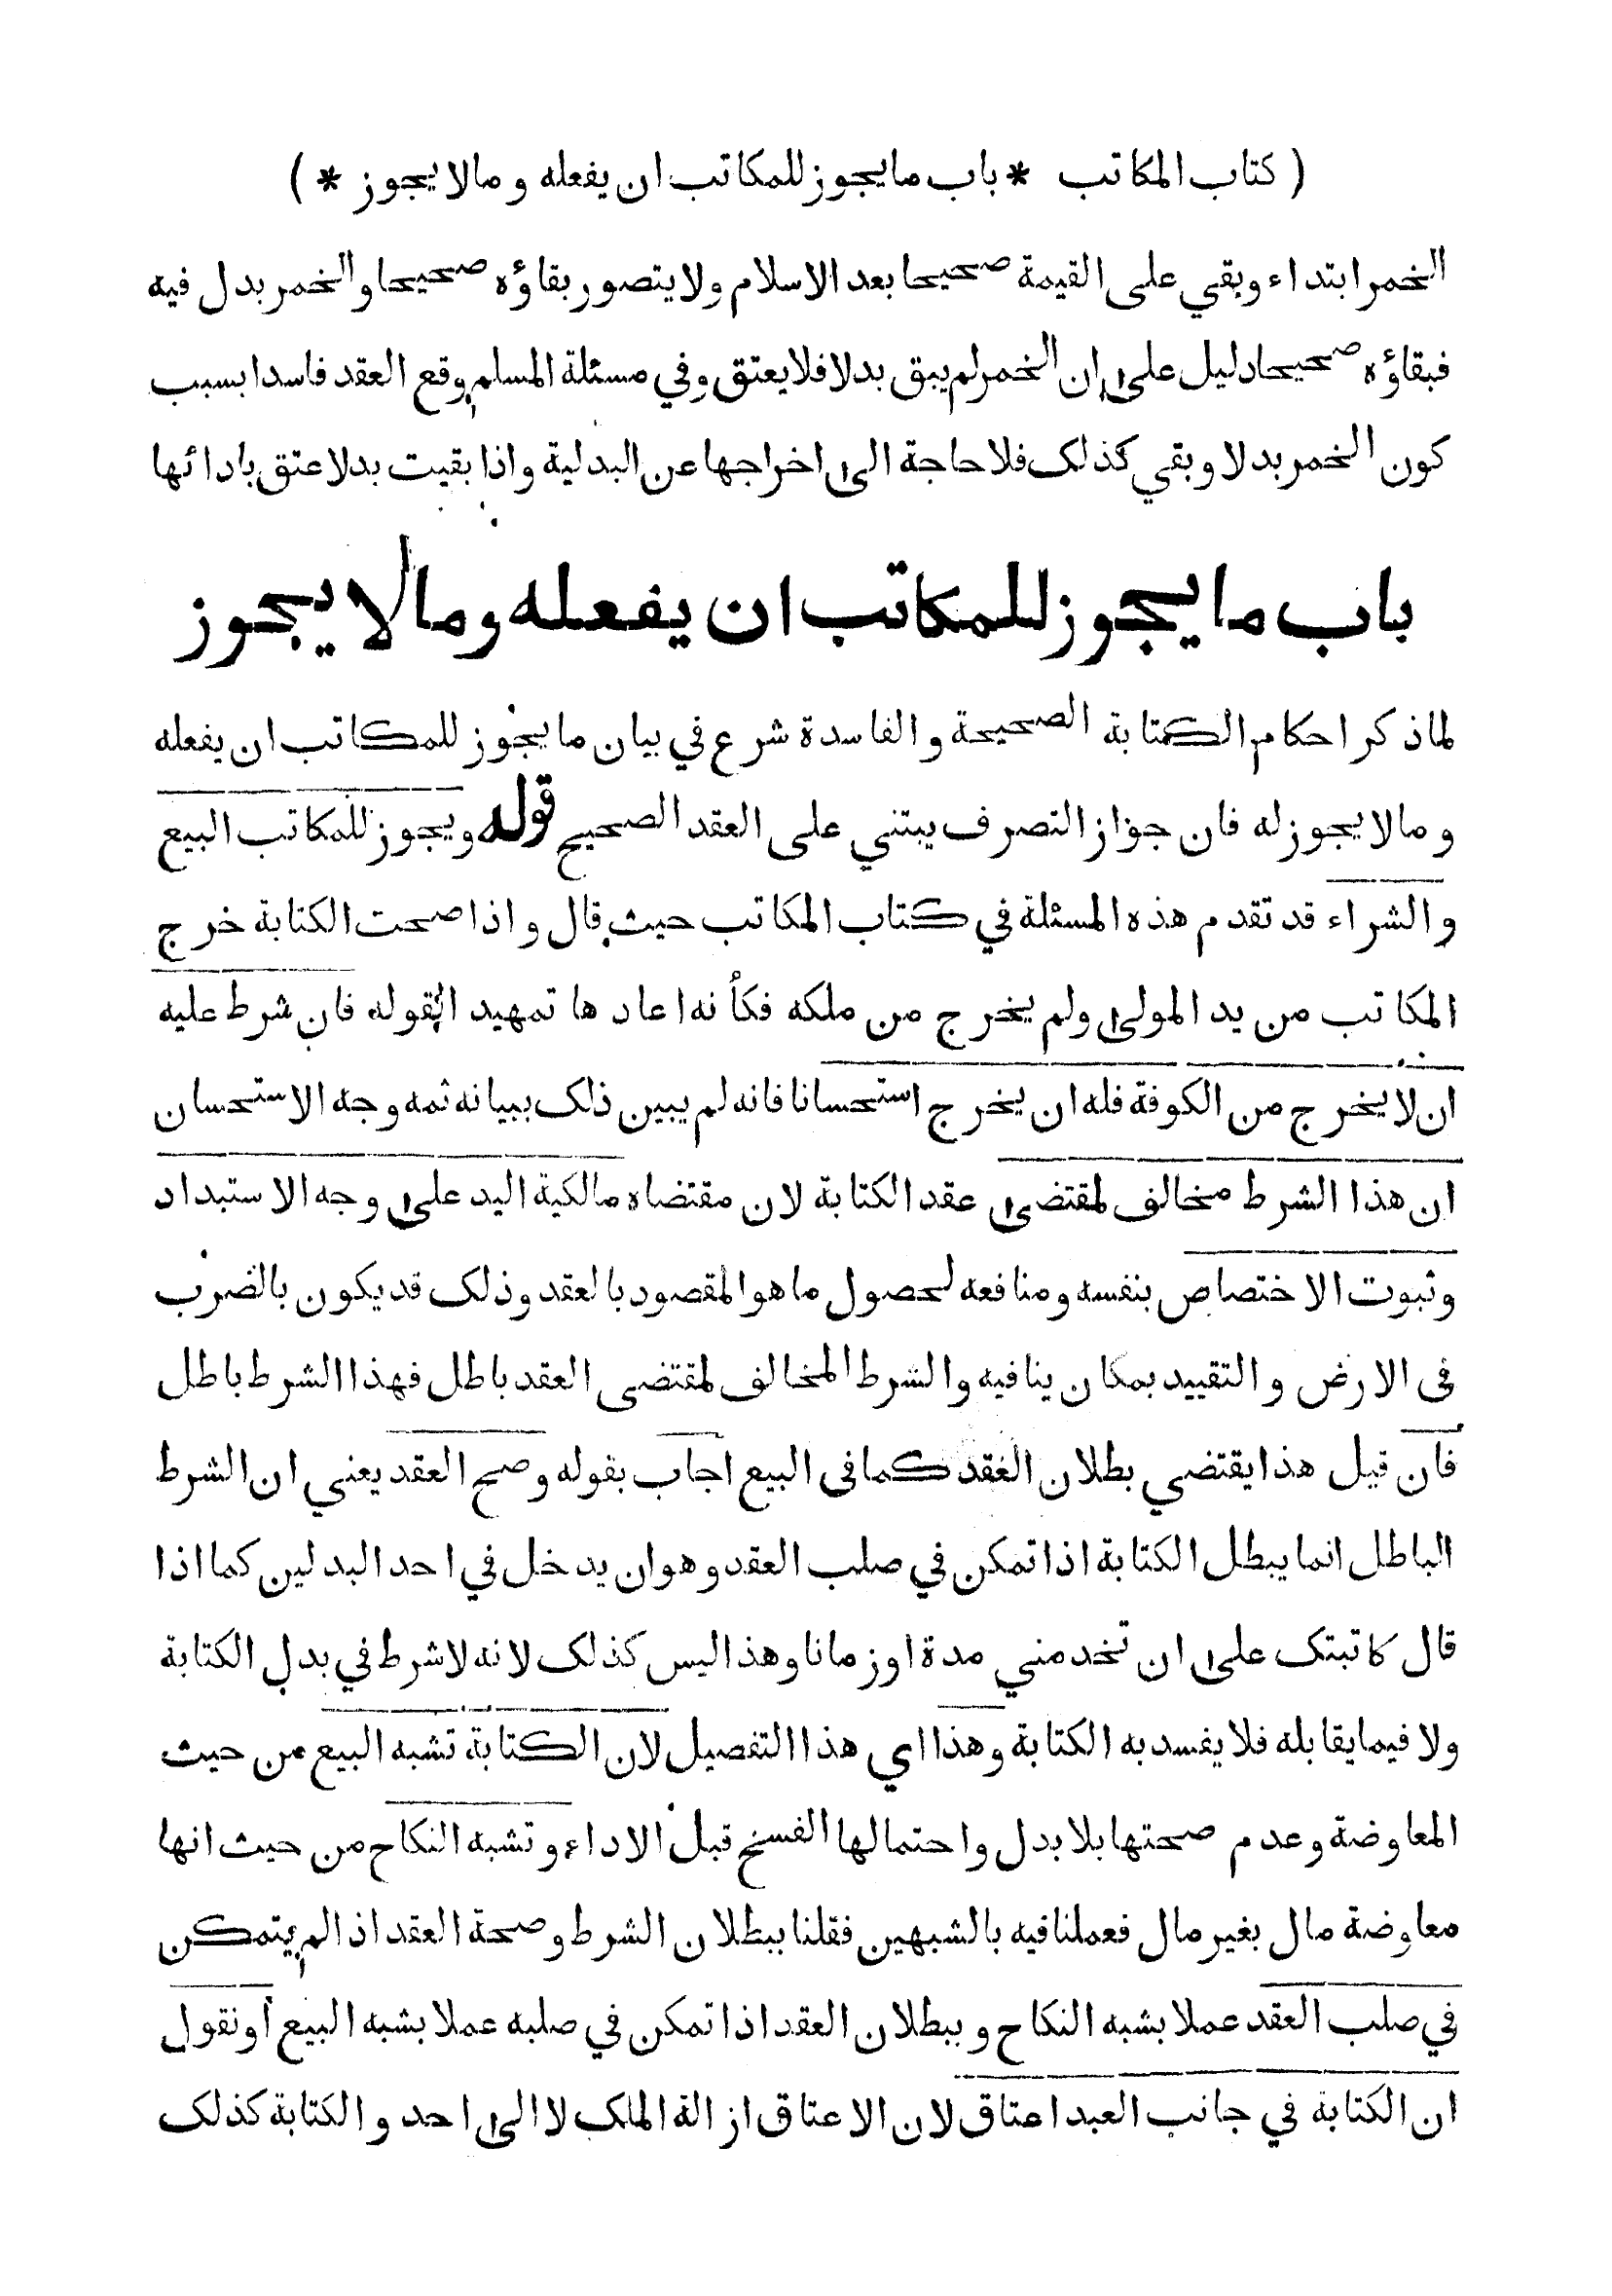 ( كتاب المكاتب * باب ما يجوز للمكاتب ان يفعله و مالا يجوز * )
الخمر ابتداء و بقي على القيمة صحيحا بعد الاسلام ولا يتصور بقاؤه صحيحا و الخمر بدل فيه
فبقاؤه صحيحا دليل على ان الخمر لم يبق بدلا فلا يعتق وفي مسئلة المسلم وقع العقد فاسدا بسبب
كون الخمر بدلا و بقي كذلك فلا حاجة الى اخراجها عن البدلية و اذا بقيت بدلا عتق بادائها
باب ما يجوز للمكاتب ان يفعله و مالا يجوز
لما ذكر احكام الكتابة الصحيحة و الفاسدة شرع في بيان ما يجوز للمكاتب ان يفعله
و مالا يجوز له فان جواز التصرف يبتني على العقد الصحيح قوله ويجوز للمكاتب البيع
و الشراء قد تقدم هذه المسئلة في كتاب المكاتب حيث قال و اذا صحت الكتابة خرج
المكاتب من يد المولى ولم يخرج من ملكه فكأنه اعادها تمهيدا لقوله فان شرط عليه
ان لا يخرج من الكوفة فله ان يخرج استحسانا فانه لم يبين ذلك ببيانه ثمه وجه الاستحسان
ان هذا الشرط مخالف لمقتضى عقد الكتابة لان مقتضاه مالكية اليد على وجه الاستبداد
و ثبوت الاختصاص بنفسه و منافعه لحصول ما هو المقصود بالعقد و ذلك قد يكون بالضرب
فى الارض و التقييد بمكان ينافيه و الشرط المخالف لمقتضى العقد باطل فهذا الشرط باطل
فان قيل هذا يقتضي بطلان العقد كما فى البيع اجاب بقوله و صح العقد يعني ان الشرط
الباطل انما يبطل الكتابة اذا تمكن في صلب العقد و هو ان يدخل في احد البدلين كما اذا
قال كاتبتك على ان تخدمني مدة او زمانا و هذا ليس كذلك لانه لا شرط في بدل الكتابة
ولا فيما يقابله فلا يفسد به الكتابة وهذا اي هذا التفصيل لان الكتابة تشبه البيع من حيث
المعاوضة و عدم صحتها بلا بدل و احتمالها الفسخ قبل الاداء و تشبه النكاح من حيث انها
معاوضة مال بغير مال فعملنا فيه بالشبهين فقلنا ببطلان الشرط و صحة العقد اذا لم يتمكن
في صلب العقد عملا بشبه النكاح و ببطلان العقد اذا تمكن في صلبه عملا بشبه البيع أو نقول
ان الكتابة في جانب العبد اعتاق لان الاعتاق ازالة الملك لا الى احد و الكتابة كذلك